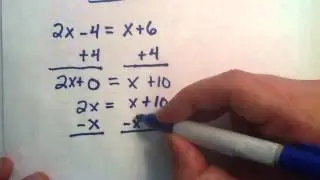 2x - 4 = x + 6
+4 +4
2x + 0 = x + 10
2x = x + 10
-x -x